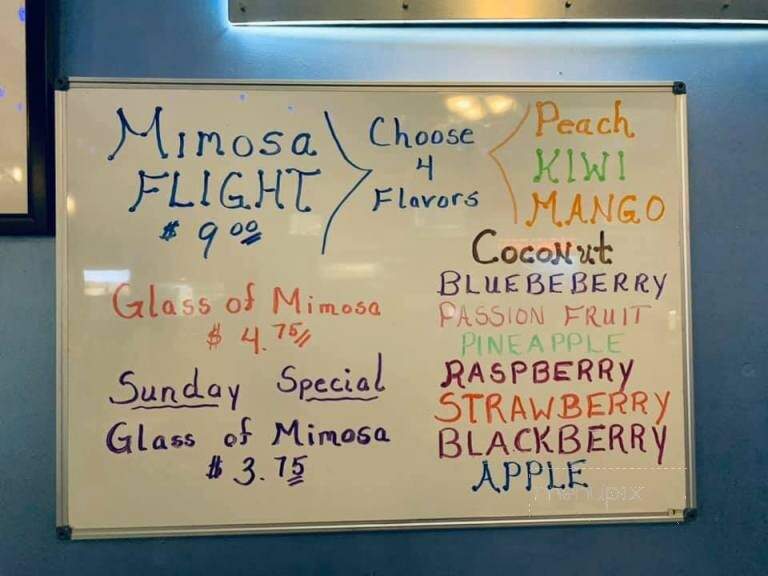 Mimosa
FLIGHT
$ 9 00
Choose
4
Flavors
Peach
KIWI
MANGO
Coconut
BLUEBEBERRY
PASSION FRUIT
PINEAPPLE
RASPBERRY
STRAWBERRY
BLACKBERRY
APPLE
Glass of Mimosa
$ 4.75
Sunday Special
Glass of Mimosa
$ 3.75
menupix